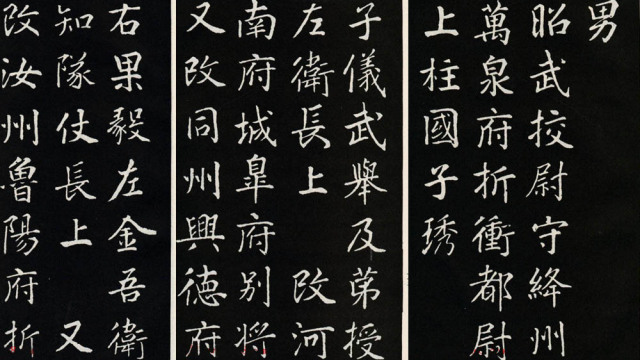 男
昭武挍尉守絳州
萬泉府折衝都尉
上柱國子琇
子儀武舉及苐授
左衛長上 改河
南府城皐府别将
又改同州興德府
右果毅左金吾衛
知隊仗長上 又
改汝州魯陽府折